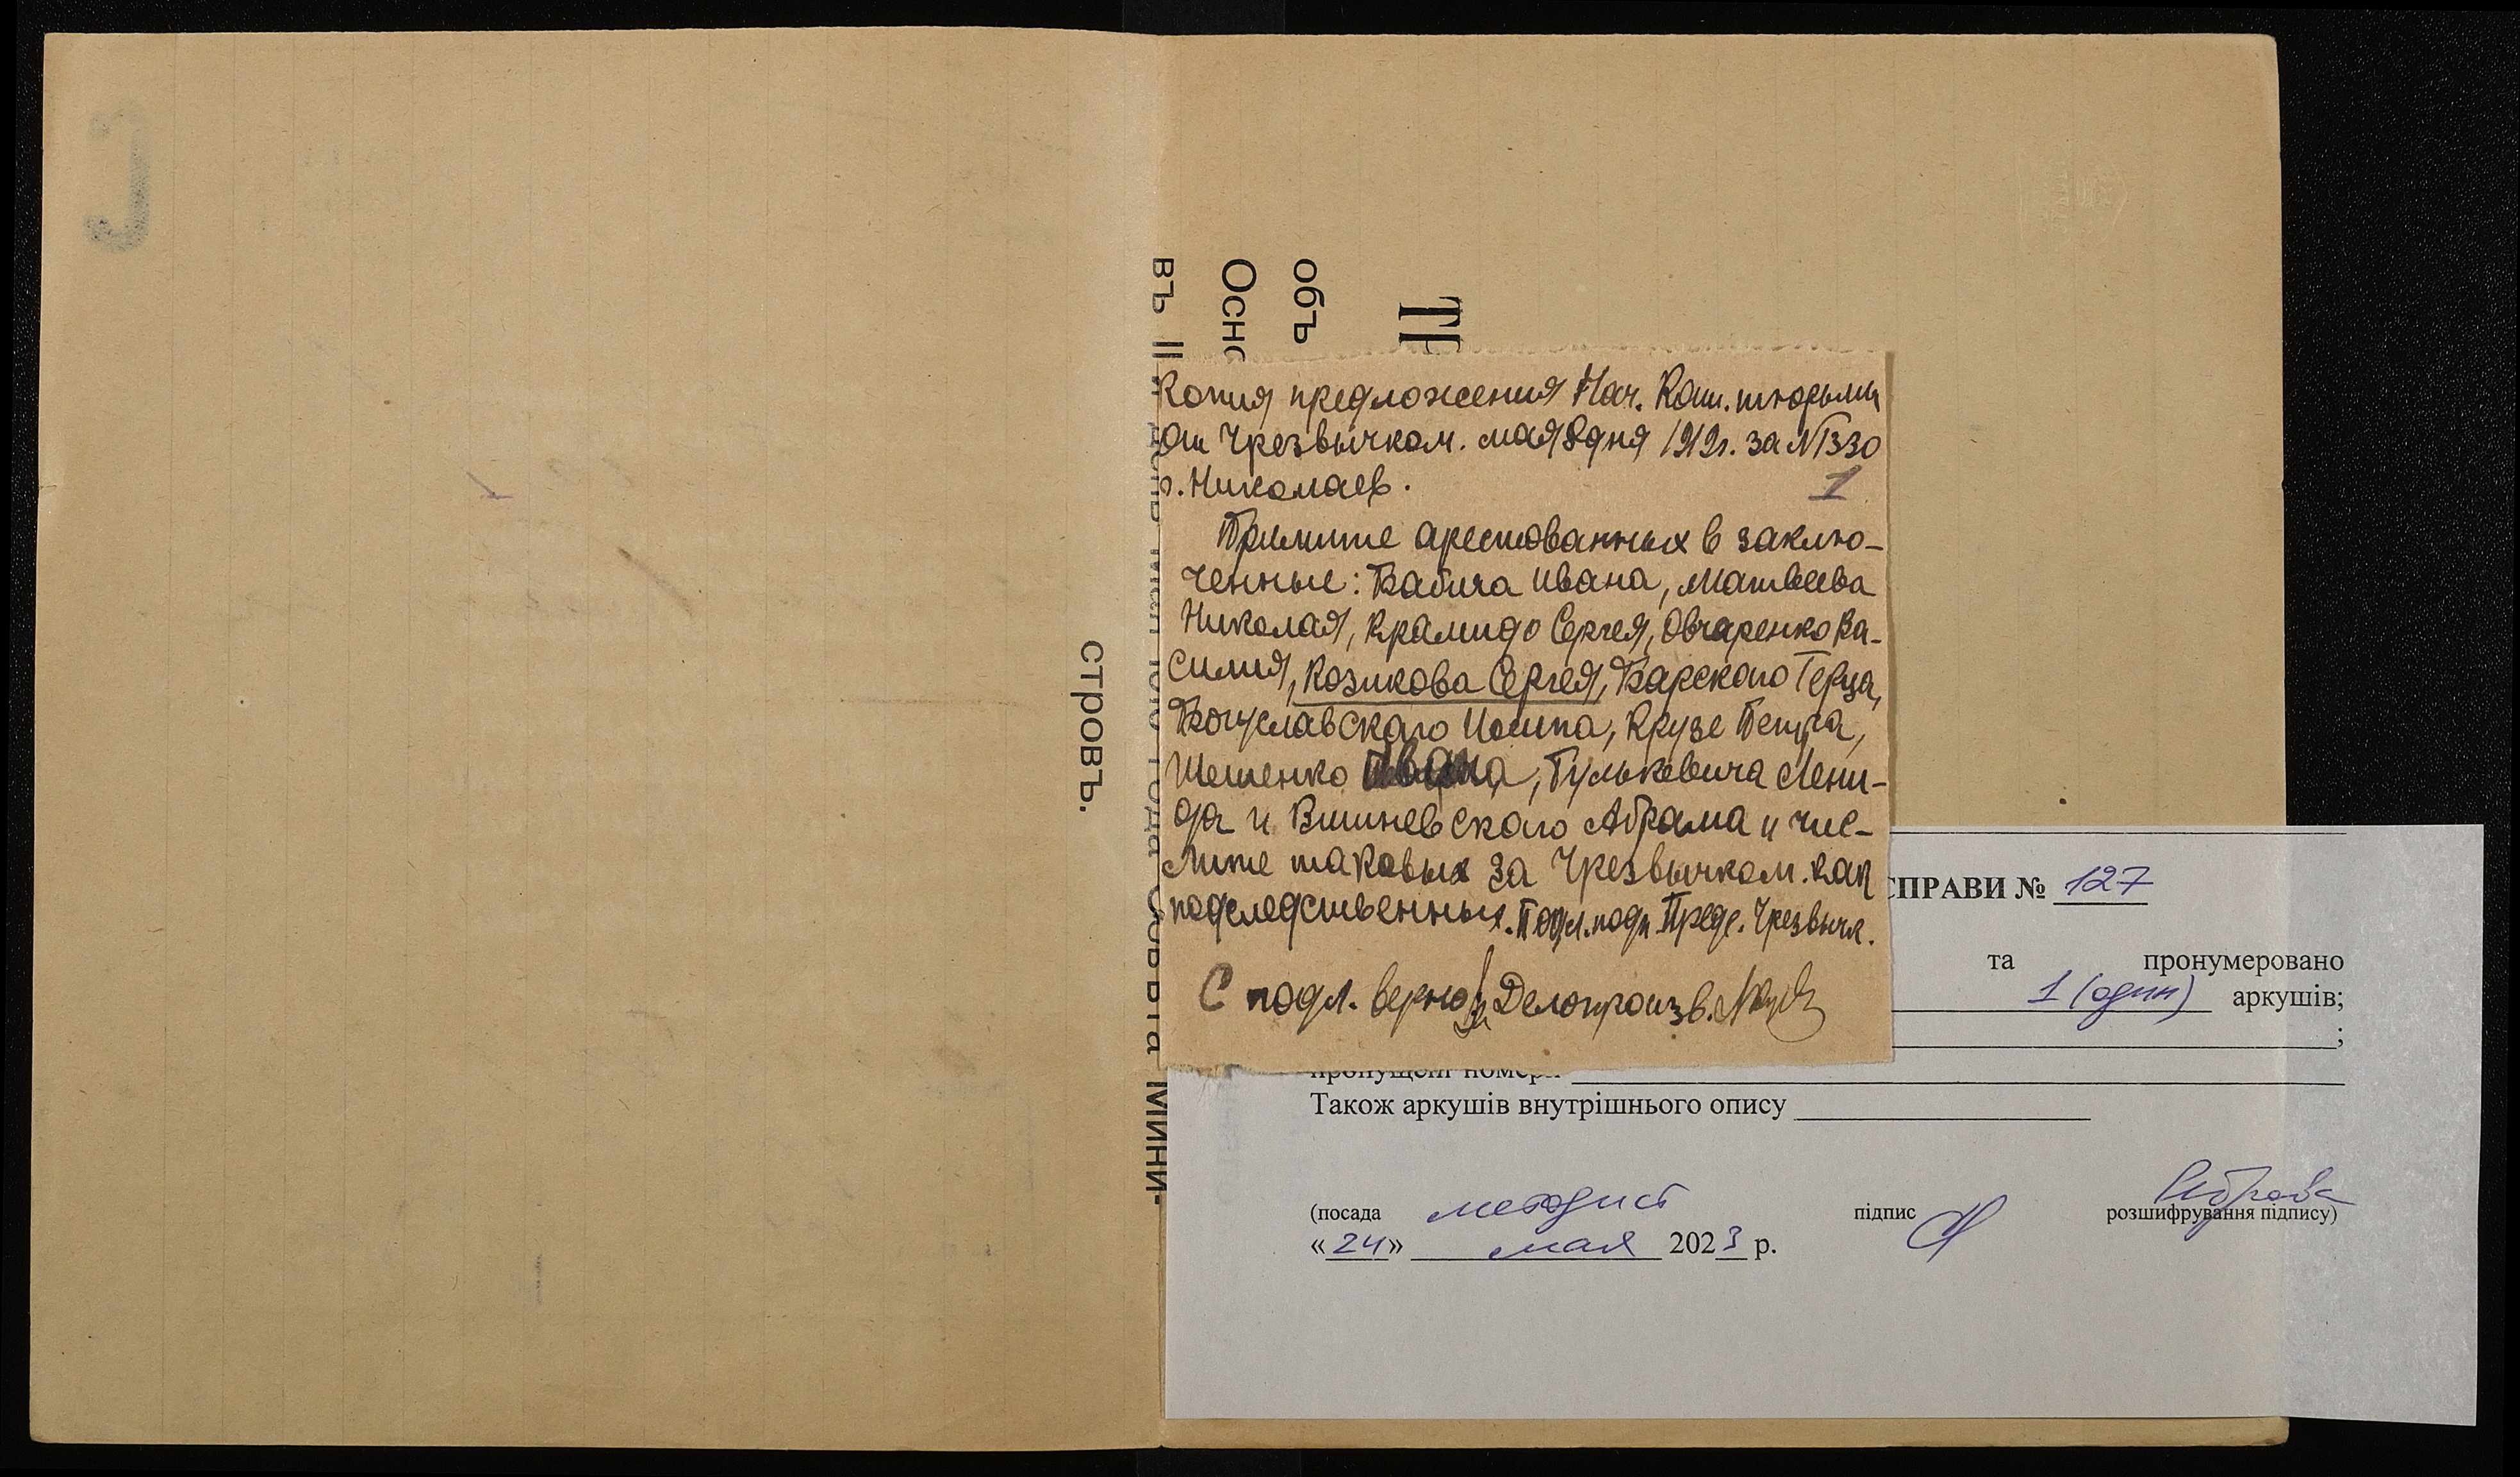 С
въ II
Осно
объ
ТЕ
стровъ.
Мини-
Копия предложения Нач. Кат. тюрьмы
От Чрезвычком. мая 8 дня 1919г. за №1330
г. Николаев.
1
Примите арестованных в заклю-
ченные: Бабича Ивана, Матвеева
Николая, Крамидо Сергея, Овчаренко Ва-
силия, Козикова Сергея, Барского Герца,
Богуславского Иосипа, Крузе Петра,
Шешенко Ивана, Гулькевича Лени-
да и Вишневского Абрама и чис-
лите таковых за Чрезвычком. как
подследственных. Подл. подп. Предс. Чрезвыч.
С подл. верно: За Делопроизв.
СПРАВИ № 127
та пронумеровано
1 (один) аркушів;
;
пропущені номери
Також аркушів внутрішнього опису
(посада методист підпис розшифрування підпису)
«24» мая 2023 р.